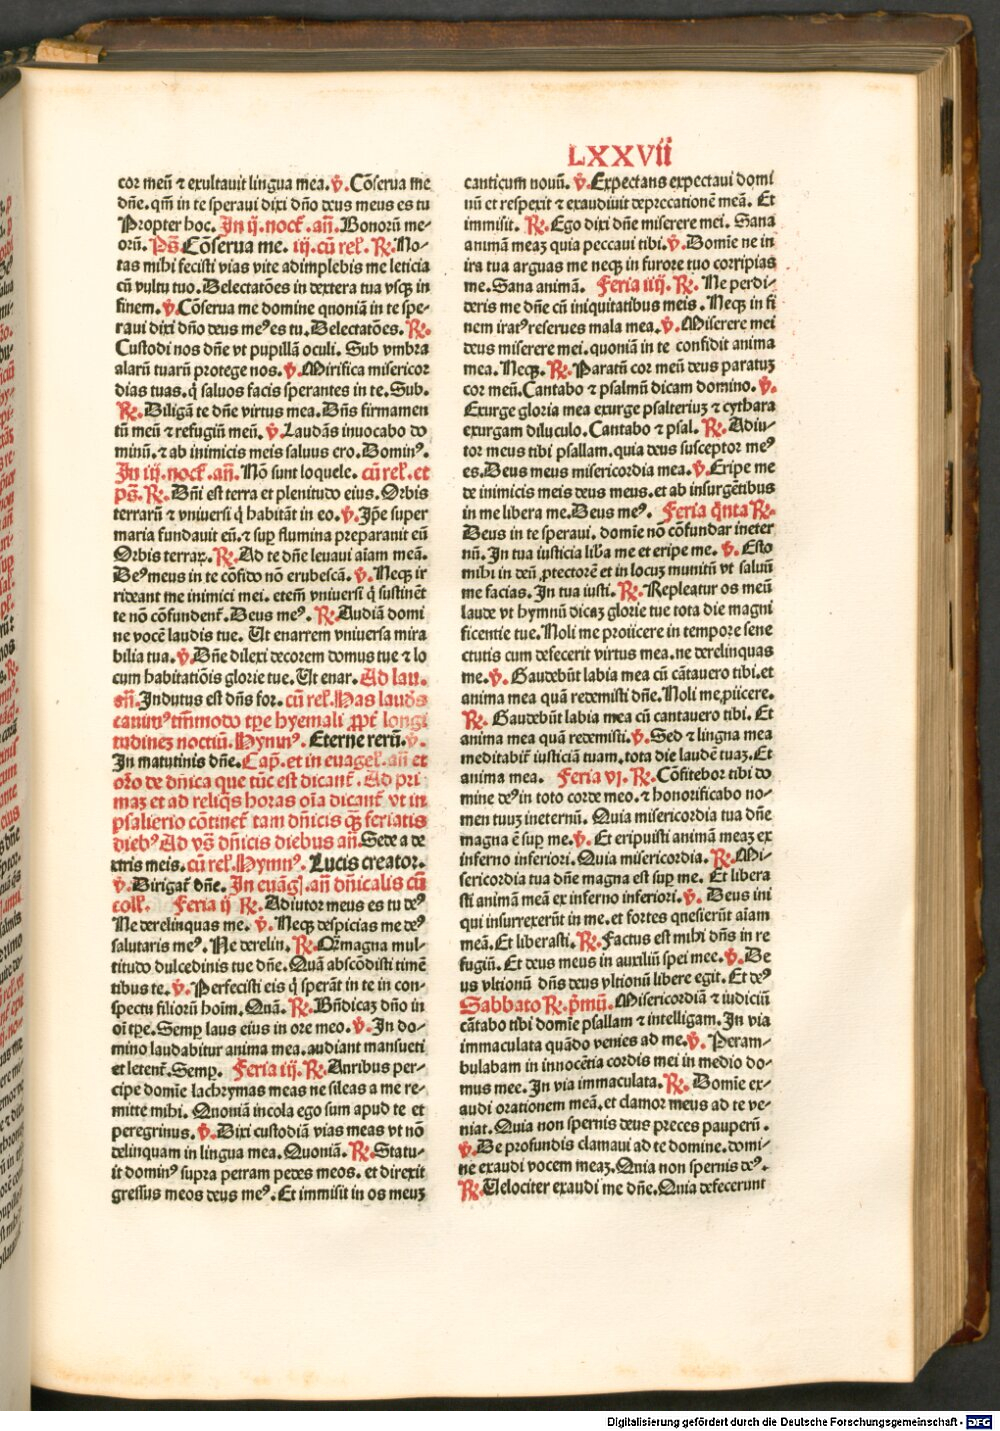 LXXVii
cor meū ⁊ exultauit lingua mea. ℣. Cōserua me
dn̄e. qm̄ in te speraui dixi dn̄o deus meus es tu
Propter hoc. In ij. noct̄. an̄. Bonorū me-
orū. Ps̄. Cōserua me. iij. cū rel̄. ℟. No-
tas mihi fecisti vias vite adimplebis me leticia
cū vultu tuo. Delectatōes in dextera tua vsqꝫ in
finem. ℣. Cōserua me domine quoniā in te spe-
raui dixi dn̄o deus meꝰ es tu. Delectatōes. ℟.
Custodi nos dn̄e vt pupillā oculi. Sub vmbra
alarū tuarū protege nos. ℣. Mirifica misericor
dias tuas. q̄ saluos facis sperantes in te. Sub.
℟. Diligā te dn̄e virtus mea. Dn̄s firmamen
tū meū ⁊ refugiū meū. ℣. Laudās inuocabo do
minū. ⁊ ab inimicis meis saluus ero. Dominꝰ.
In iij. noct̄. an̄. Nō sunt loquele. cū rel̄. et
ps̄. ℟. Dn̄i est terra et plenitudo eius. Orbis
terrarū ⁊ vniuersi q̄ habitāt in eo. ℣. Ip̄e super
maria fundauit eū. ⁊ suꝑ flumina preparauit eū
Orbis terraꝝ. ℟. Ad te dn̄e leuaui aīam meā.
Deꝰ meus in te cōfido nō erubescā. ℣. Neqꝫ ir
rideant me inimici mei. etem̄ vniuersi q̄ sustinēt
te nō cōfundent̄. Deus meꝰ. ℟. Audiā domi
ne vocē laudis tue. Ut enarrem vniuersa mira
bilia tua. ℣. Dn̄e dilexi decorem domus tue ⁊ lo
cum habitatiōis glorie tue. Ut enar. Ad lau.
an̄. Indutus est dn̄s for. cū rel̄. Has laudes
tm̄modo tꝑe hyemali ꝓpt̄ longi
tudinez noctiū. Hymnꝰ. Eterne rerū. ℣.
In matutinis dn̄e. Cap̄. et in euagel̄. an̄ et
oro de dn̄ica que tūc est dicant̄. Ad pri
maꝫ et ad reliq̄s horas oīa dicant̄ vt in
psalterio cōtinet̄ tam dn̄icis qꝫ feriatis
diebꝰ Ad vs̄ dn̄icis diebus an̄. Sede a de
xtris meis. cū rel̄. Hymnꝰ. Lucis creator.
℣. Dirigat̄ dn̄e. In euāgl̄. an̄ dn̄icalis cū
coll̄. Feria ij ℟. Adiutor meus es tu deꝰ
Ne derelinquas me. ℣. Neqꝫ despicias me deꝰ
salutaris meꝰ. Ne derelin. ℟. Qm̄ magna mul-
titudo dulcedinis tue dn̄e. Quā abscōdisti timē
tibus te. ℣. Perfecisti eis q̄ sperāt in te in con-
spectu filiorū hoīm. Quā. ℟. Bn̄dicaꝫ dn̄o in
oī tꝑe. Semꝑ laus eius in ore meo. ℣. In do-
mino laudabitur anima mea. audiant mansueti
et letent̄. Semꝑ. Feria iij. ℟. Auribus per-
cipe domīe lachrymas meas ne sileas a me re-
mitte mihi. Quoniā incola ego sum apud te et
peregrinus. ℣. Dixi custodiā vias meas vt nō
delinquam in lingua mea. Quoniā. ℟. Statu-
it dominꝰ supra petram pedes meos. et direxit
gressus meos deus meꝰ. Et immisit in os meuꝫ
canticum nouū. ℣. Expectans expectaui domi
nū et respexit ⁊ exaudiuit deprecationē meā. Et
immisit. ℟. Ego dixi dn̄e miserere mei. Sana
animā meaꝫ quia peccaui tibi. ℣. Domīe ne in
ira tua arguas me neqꝫ in furore tuo corripias
me. Sana animā. Feria iiij. ℟. Ne perdi-
deris me dn̄e cū iniquitatibus meis. Neqꝫ in fi
nem iratꝰ reserues mala mea. ℣. Miserere mei
deus miserere mei. quoniā in te confidit anima
mea. Neqꝫ. ℟. Paratū cor meū deus paratuꝫ
cor meū. Cantabo ⁊ psalmū dicam domino. ℣.
Exurge gloria mea exurge psalteriuꝫ ⁊ cythara
exurgam diluculo. Cantabo ⁊ psal. ℟. Adiu-
tor meus tibi psallam. quia deus susceptor meꝰ
es. Deus meus misericordia mea. ℣. Eripe me
de inimicis meis deus meus. et ab insurgētibus
in me libera me. Deus meꝰ. Feria q̄nta ℟.
Deus in te speraui. domīe nō cōfundar ineter
nū. In tua iusticia lib̄a me et eripe me. ℣. Esto
mihi in deū ꝓtectorē et in locuꝫ munitū vt saluū
me facias. In tua iusti. ℟. Repleatur os meū
laude vt hymnū dicaꝫ glorie tue tota die magni
ficentie tue. Noli me proiicere in tempore sene
ctutis cum defecerit virtus mea. ne derelinquas
me. ℣. Gaudebūt labia mea cū cātauero tibi. et
anima mea quā redemisti dn̄e. Noli me ꝓiicere.
℟. Gaudebūt labia mea cū cantauero tibi. Et
anima mea quā redemisti. ℣. Sed ⁊ lingua mea
meditabit̄ iusticiā tuam. tota die laudē tuaꝫ. Et
anima mea. Feria vj. ℟. Cōfitebor tibi do
mine deꝰ in toto corde meo. ⁊ honorificabo no-
men tuuꝫ ineternū. Quia misericordia tua dn̄e
magna ē suꝑ me. ℣. Et eripuisti animā meaꝫ ex
inferno inferiori. Quia misericordia. ℟. Mi-
sericordia tua dn̄e magna est suꝑ me. Et libera
sti animā mea ex inferno inferiori. ℣. Deus ini
qui insurrexerūt in me. et fortes quesierūt aīam
meā. Et liberasti. ℟. Factus est mihi dn̄s in re
fugiū. Et deus meus in auxiliū spei mee. ℣. De
us vltionū dn̄s deus vltionū libere egit. Et deꝰ
Sabbato ℟. p̄mū. Misericordiā ⁊ iudiciū
cātabo tibi domīe psallam ⁊ intelligam. In via
immaculata quādo venies ad me. ℣. Peram-
bulabam in innocētia cordis mei in medio do-
mus mee. In via immaculata. ℟. Domīe ex-
audi orationem meā. et clamor meus ad te ve-
niat. Quia non spernis deus preces pauperū.
℣. De profundis clamaui ad te domine. domi-
ne exaudi vocem meaꝫ. Quia non spernis deꝰ.
℟. Uelociter exaudi me dn̄e. Quia defecerunt
Digitalisierung gefördert durch die Deutsche Forschungsgemeinschaft - DFG